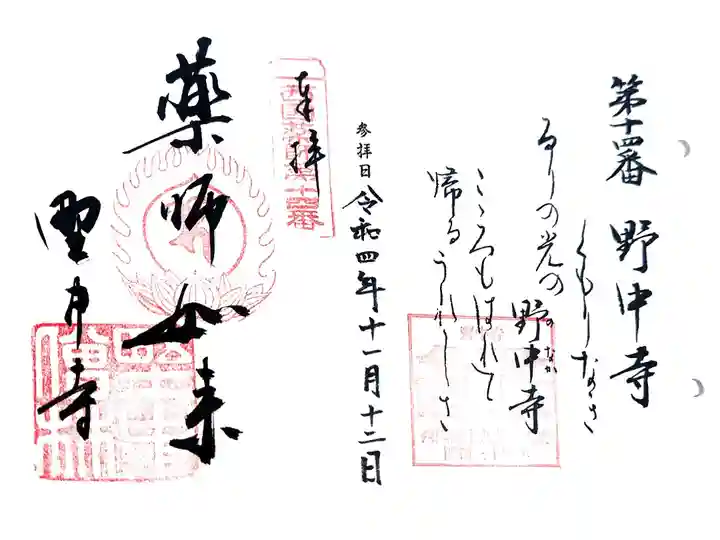 第十四番 野中寺
くもりなき
るりの光の
野中寺
のなか
こゝろもはれて
帰るうれしさ
参拝日 令和四年十一月十二日
奉拝
西国薬師第十四番
薬師如来
野中寺